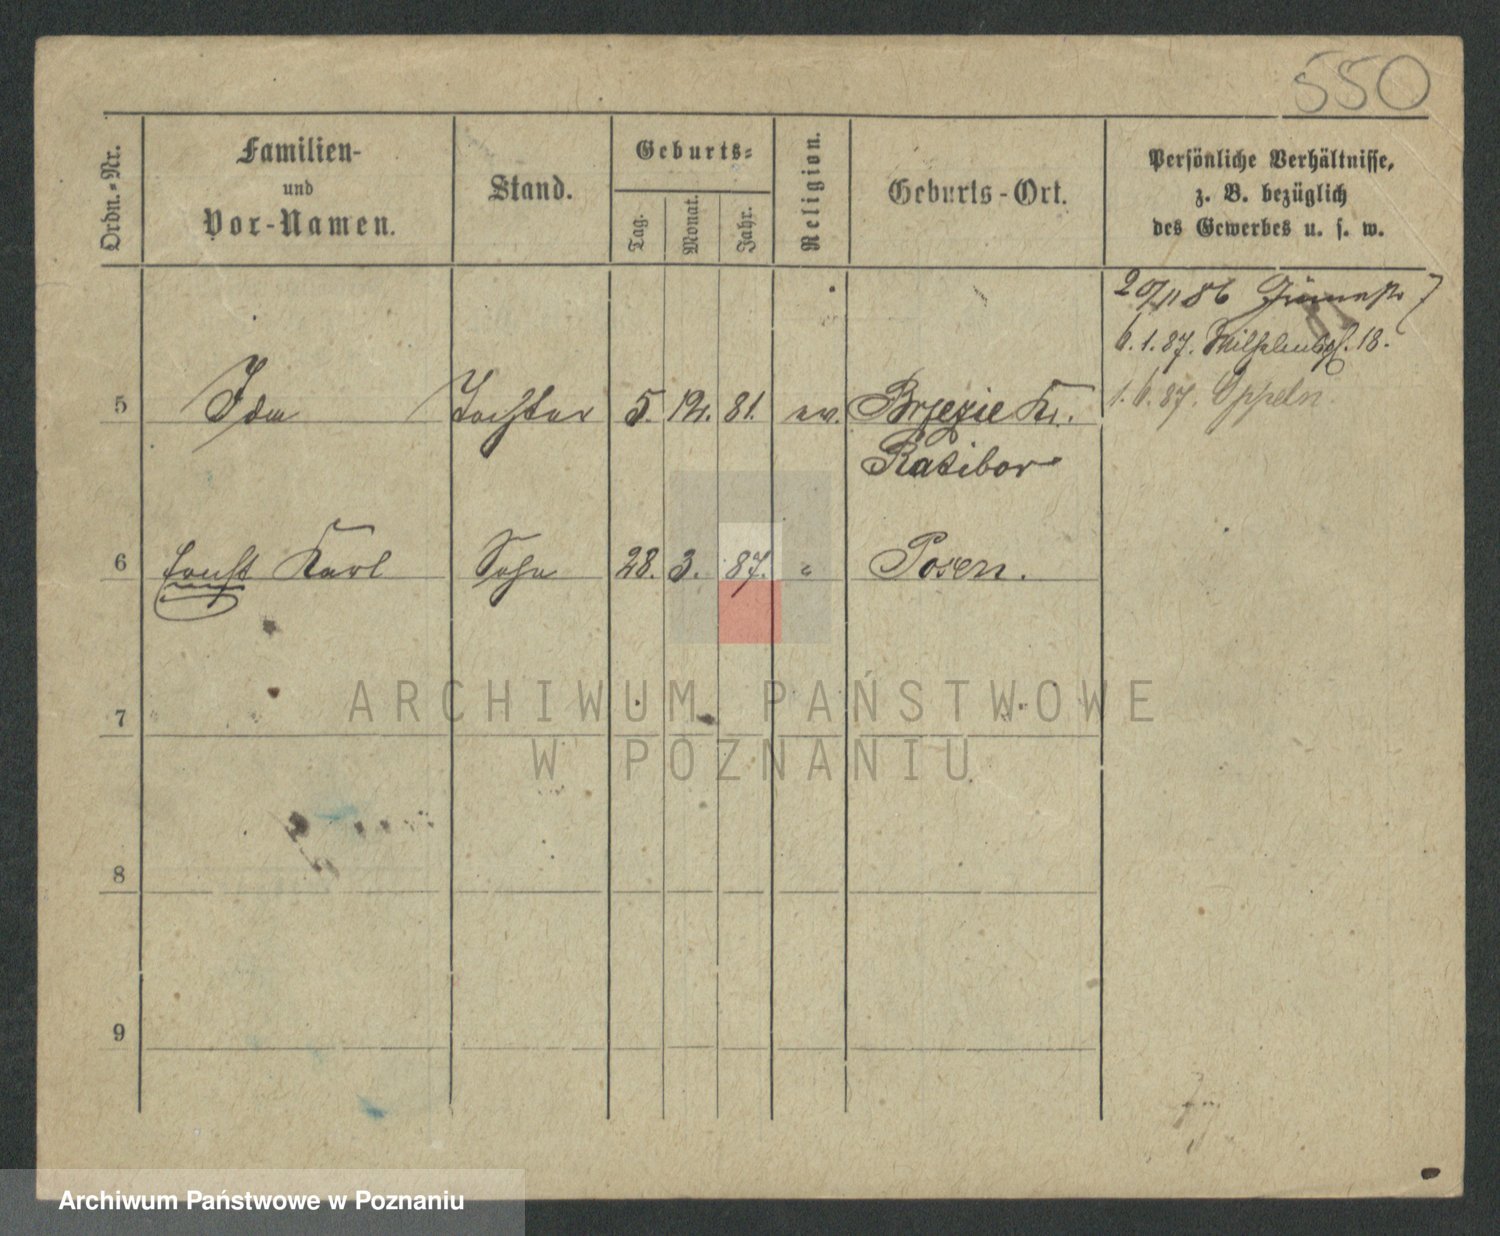 550
Ordn.-Nr.
Familien-
und
Vor-Namen.
Stand.
Geburts-
Tag.
Monat.
Jahr.
Religion.
Geburts-Ort.
Persönliche Verhältnisse,
z. B. bezüglich
des Gewerbes u. s. w.
20/11 86 7
6.1.87. 18.
1.6.87. Oppeln.
5 Ida Tochter 5. 12. 81. ev. Brzezie Kr.
Ratibor
6 Ernst Karl Sohn 28. 3. 87. " Posen.
7
ARCHIWUM PAŃSTWOWE
W POZNANIU
8
9
Archiwum Państwowe w Poznaniu